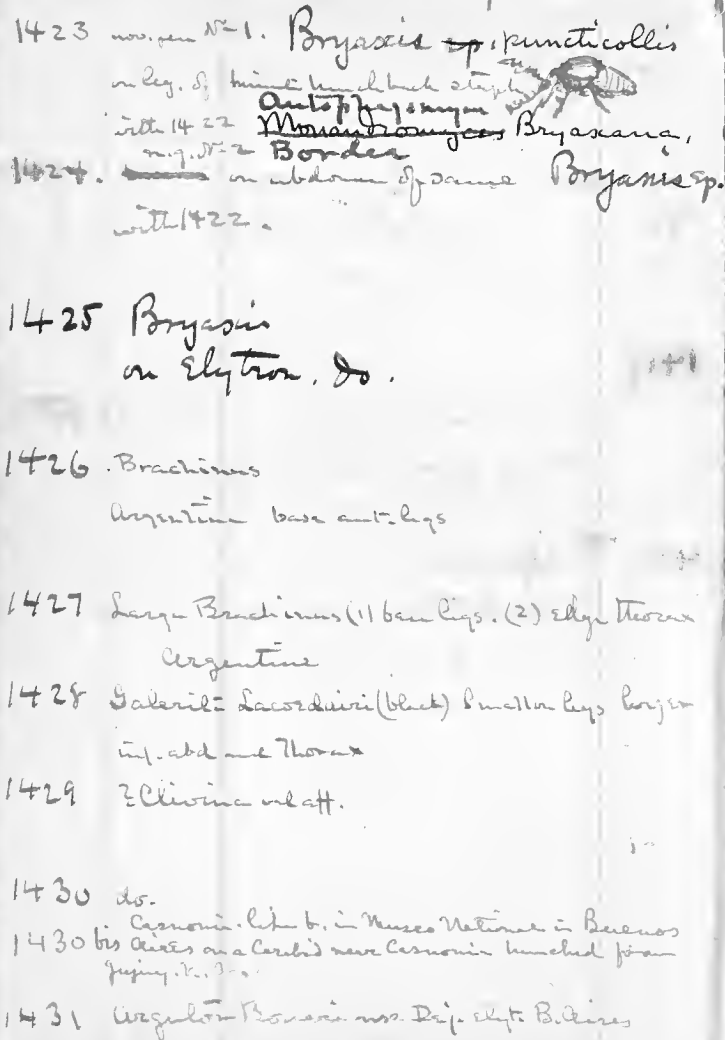 1423 nov. gen No 1. Bryaxis sp. puncticollis
on leg. of minute hunchback staph
Autophagomyces
with 1422 Monandromyces Bryaxana,
n. g. No 2 Border
1424. on abdomen of same Bryaxis sp.
with 1422.
1425 Bryaxis
on Elytron. do.
1426 . Brachinus
Argentine base ant. legs
1427 Large Brachinus (1) base legs. (2) edge thorax
Argentine
1428 Galerita Lacordairi (black) Small on legs larger
inf. abd and Thorax
1429 ? Clivina vel aff.
1430 do.
Casnonia. like b. in Museo National in Buenos
1430 bis Aires on a Carabid near Casnonia hunched form
Jujuy.
1431 Bonariensis Dej. elyt. B. Aires